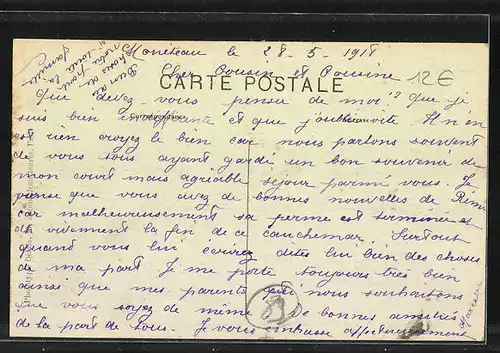 Monéteau le 28-5-1918
Cher Cousin et Cousine
12€
CARTE POSTALE
Correspondance
Que devez vous penser de moi? que je
suis bien indifférente et que j'oublie Il n'en
est rien croyez le bien car nous partons souvent
de vous tous ayant gardé un bon souvenir de
mon court mais agréable séjour parmi vous. Je
pense que vous avez de bonnes nouvelles de Rémi
car malheureusement sa perme est terminée et
vivement la fin de ce cauchemar Surtout
quand vous lui écrirez dites lui bien des choses
de ma part Je me porte toujours très bien
ainsi que mes parents et nous souhaitons
que vous soyez de même De bonnes amitiés
de la part de tous. Je vous embrasse affectueusement
Bien des
choses de
notre part
à toute la
famille